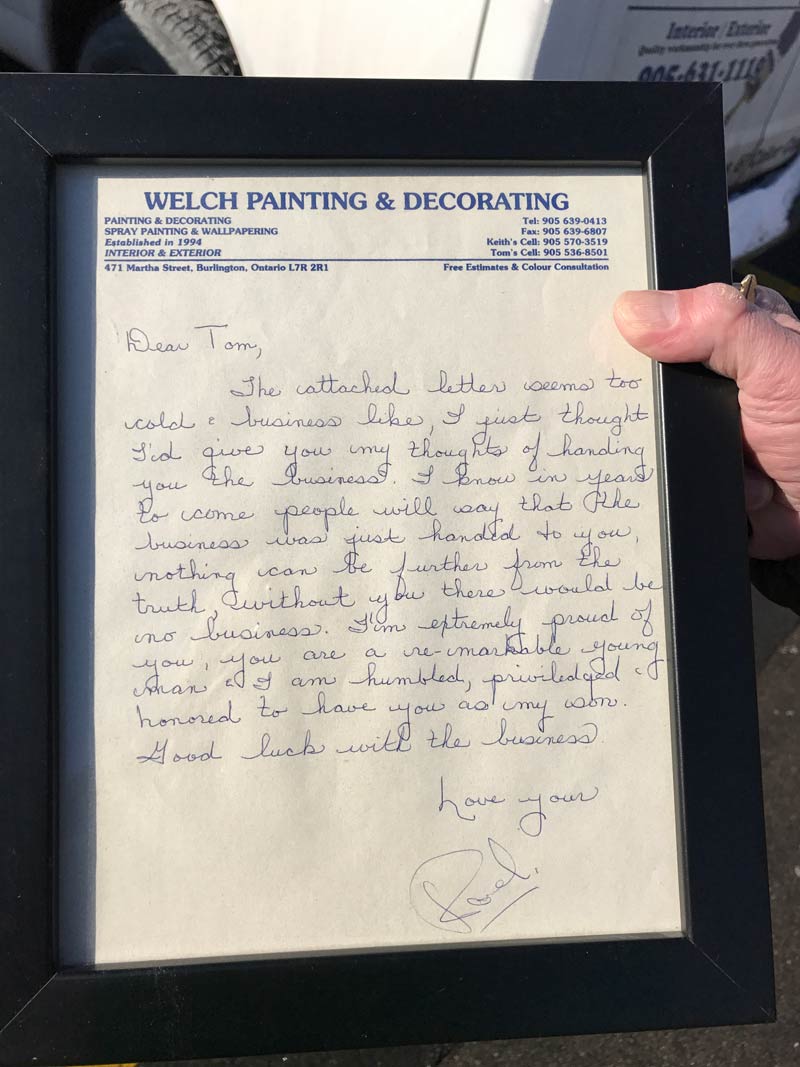 Interior / Exterior
905-631-1119
WELCH PAINTING & DECORATING
PAINTING & DECORATING
SPRAY PAINTING & WALLPAPERING
Established in 1994
INTERIOR & EXTERIOR
471 Martha Street, Burlington, Ontario L7R 2R1
Tel: 905 639-0413
Fax: 905 639-6807
Keith's Cell: 905 570-3519
Tom's Cell: 905 536-8501
Free Estimates & Colour Consultation
Dear Tom,
The attached letter seems too
cold & business like, I just thought
I'd give you my thoughts of handing
you the business. I know in years
to come people will say that the
business was just handed to you,
nothing can be further from the
truth, without you there would be
no business. I'm extremely proud of
you, you are a re-markable young
man & I am humbled, priviledged &
honored to have you as my son.
Good luck with the business.
Love your